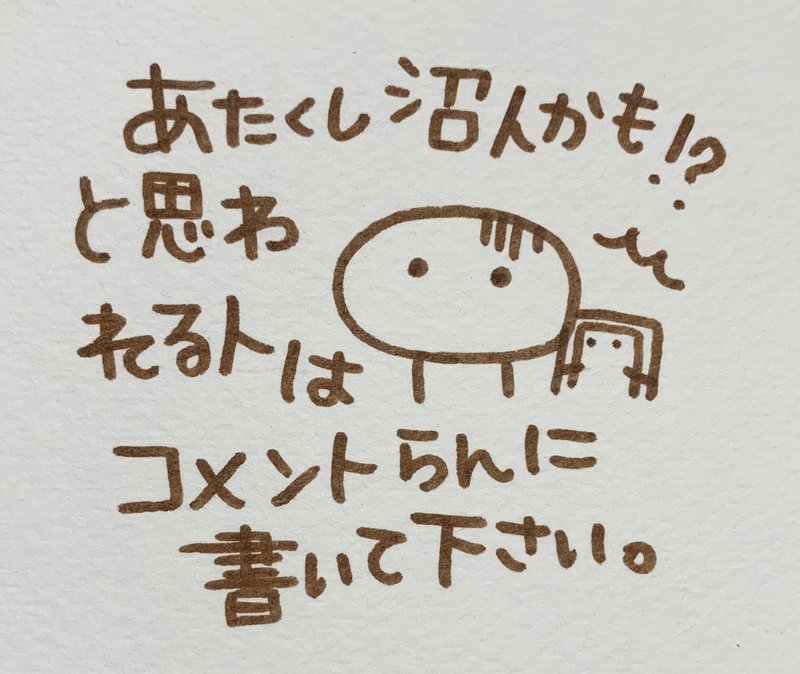 あたくし沼人かも!?
と思わ
れる人は
コメントらんに
書いて下さい。